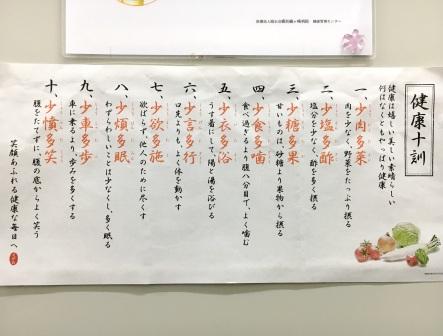 健康十訓
健康は嬉しい美しい素晴らしい
何はなくともやっぱり健康
一、少肉多菜
肉を少なく、野菜をたっぷり摂る
二、少塩多酢
塩分を少なく、酢を多く摂る
三、少糖多果
甘いものは、砂糖より果物から摂る
四、少食多噛
食べ過ぎるより腹八分目で、よく噛む
五、少衣多浴
うす着にして、陽と湯を浴びる
六、少言多行
口先よりも、よく体を動かす
七、少欲多施
欲ばらず、他人のために尽くす
八、少煩多眠
わずらわしいことは少なくし、多く眠る
九、少車多歩
車に乗るより、歩みを多くする
十、少憤多笑
腹をたてずに、腹の底からよく笑う
笑顔あふれる健康な毎日へ